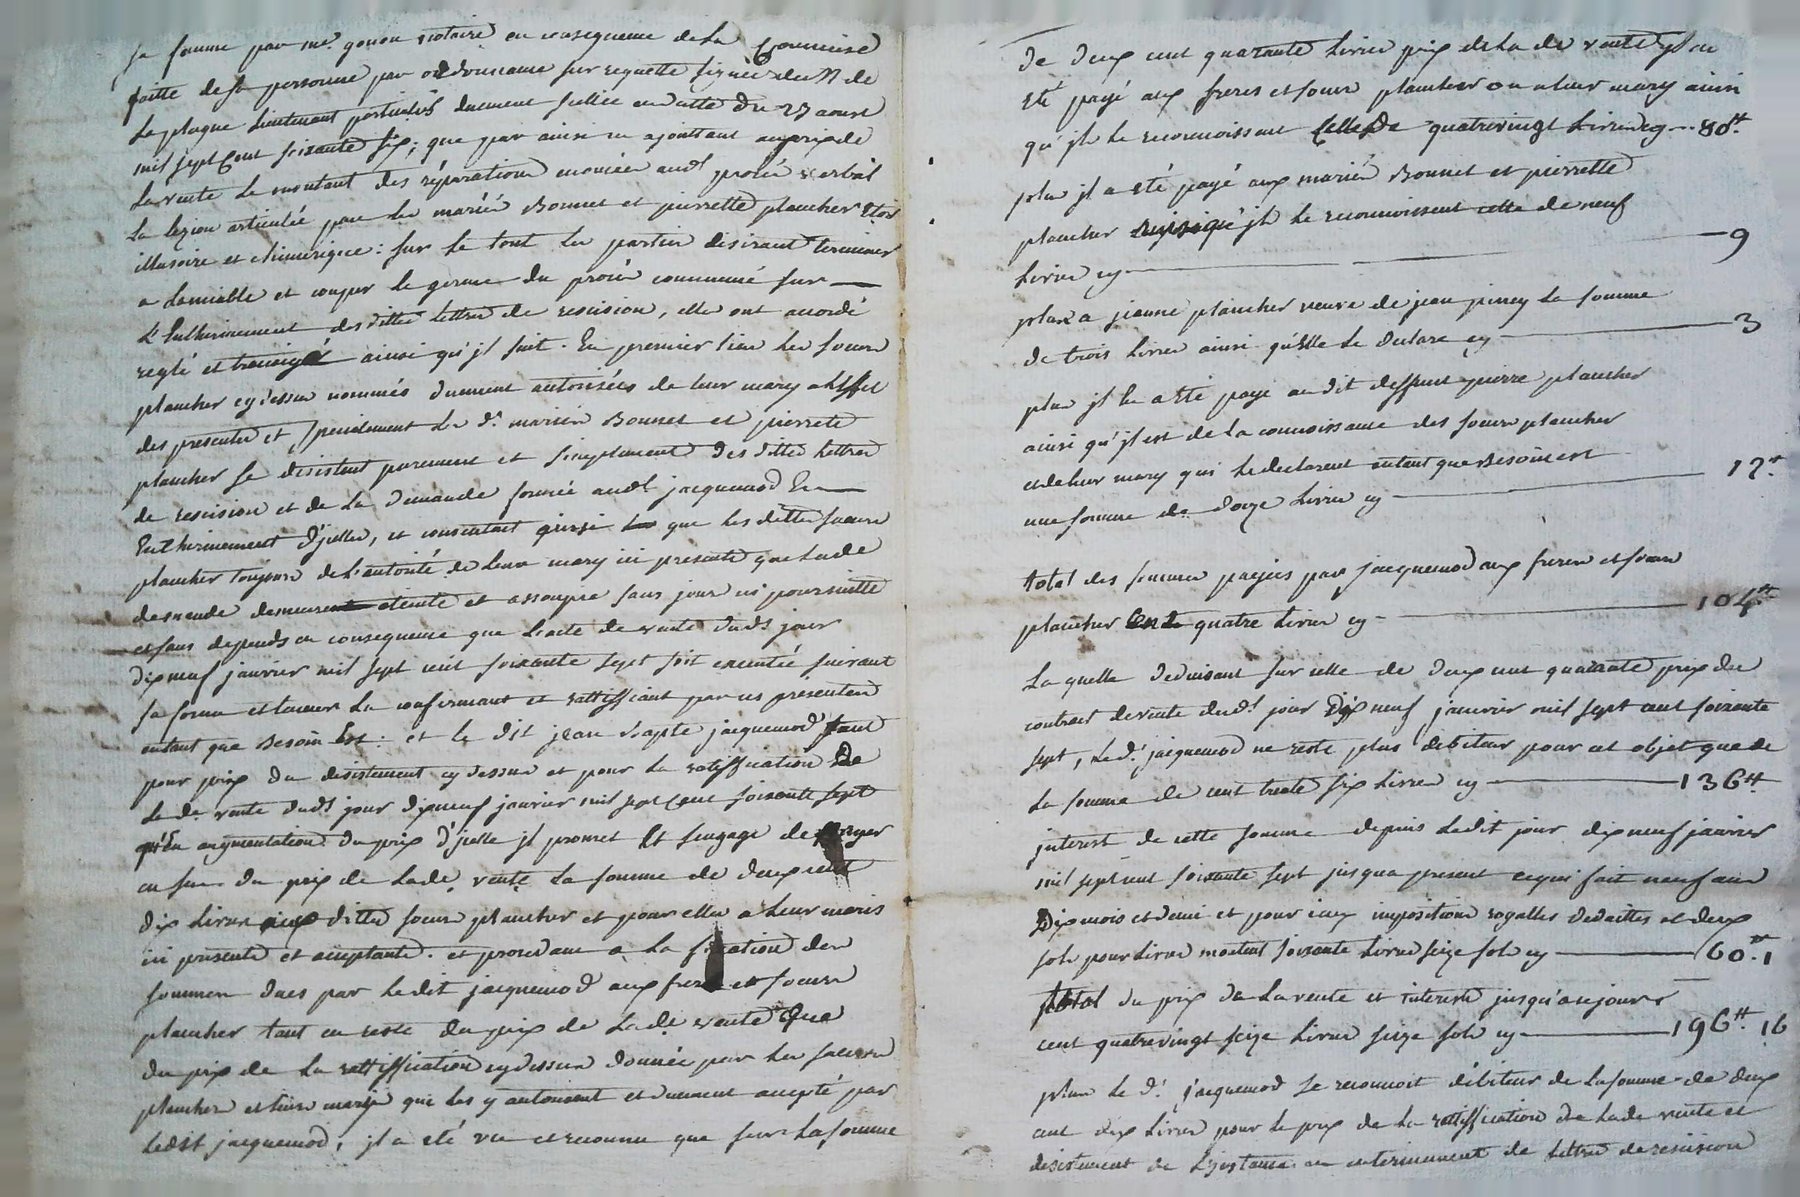 sa somme par me. gonon notaire en consequence de la Commise
faitte de sa personne par ordonnance sur requette signée de Mr de
la plagne lieutenant particulié duement sellée en datte du 23 aoust
mil sept Cent soixante six; que par ainsi en ajouttant au prix de
la vente le montant des réparations enoncée audt procés verbal
la lezion articulée par les mariés Bonnet et pierrette plancher étoit
illusoire et chimerique: sur le tout les parties desirant terminer
a lamiable et couper le germe du procés commencé sur
L'Entherinement desdittes Lettres de rescision, elle ont accordé
reglé et transigé ainsi qu'jl suit. En premier lieu les soeurs
plancher cydessus nommés duement autorisées de leur marys a l'Effet
des presentes et specialement les ds. mariés Bonnet et pierrete
plancher se desistent purement et simplement des dittes Lettres
de rescision et de la demande formée audt jacquemod En
Entherinement d'jcelles, et consentent que les dittes soeurs
plancher toujours de L'autorité de leurs marys ici presents que lade
demande demeure eteinte et assoupie sans jour ni poursuitte
et sans depends en consequence que L'acte de vente dudt jour
dixneuf janvier mil sept cent soixante sept soit executée suivant
sa forme et teneur la confirmant et rattiffiant par ces presentes
autant que Besoin Est: et le dit jean B'apte jacquemod tant
pour prix du desistement cy dessus et pour la ratiffication De
la de vente dudt jour dixneuf janvier mil sept Cent soixante sept
qu'En augmentation du prix d'jcelle jl promet Et s'engage de payer
en sus du prix de lade. vente la somme de deux cent
dix livres aux dittes soeurs plancher et pour elles a leur maris
ici presents et acceptants. et procedant a la fixation des
sommes dues par ledit jacquemod aux freres et soeurs
plancher tant en reste du prix de lade vente Que
du prix de la rattiffication cydessus donnée par les soeurs
plancher et leurs marys que les y autorisent et duement accepté par
ledit jacquemod, jl a eté vu et reconnu que sur la somme
de deux cent quarante livres prix de la de vente jl en
Eté payé aux freres et soeurs plancher ou a leur marys ainsi
qu'jls le reconnoissent Celle de quatrevingt livres cy 80tt.
plus jl a eté payé aux mariés Bonnet et pierrette
plancher qu'jls le reconnoissent cette de neuf
livres cy 9
plus a jeanne plancher veuve de jean pirrey la somme
de trois livres ainsi qu'Elle le declare cy 3
plus jl en a Eté payé au dit deffunt pierre plancher
ainsi qu'jl est de la connoissance des soeurs plancher
et de leur marys qui le declarent autant que Besoin est
une somme de douze livres cy 12tt
total des sommes payées par jacquemod aux freres et soeurs
plancher Cent quatre livres cy 104tt
La quelle deduisant sur celle de deux cent quarante prix du
contract de vente dudt jour dix neuf janvier mil sept cent soixante
sept, le dt. jacquemod ne reste plus debiteur pour cet objet que de
la somme de cent trente six livres cy 136tt
jnterest de cette somme depuis ledit jour dix neuf janvier
mil sept cent soixante sept jusqua present ce qui fait neuf ans
Dix mois et demi et pour iceux impositions royalles deduittes et deux
sols pour livres montent soixante livres seize sols cy 60tt. 1
total du prix de la vente et interests jusqu'a ce jour
cent quatrevingt seize livres seize sols cy 196tt. 16
plus le dt. jacquemod se reconnoit débiteur de la somme de deux
cent dix livres pour le prix de la rattiffication de lade vente et
desistement de L'jnstance en enterinement de lettres de rescision